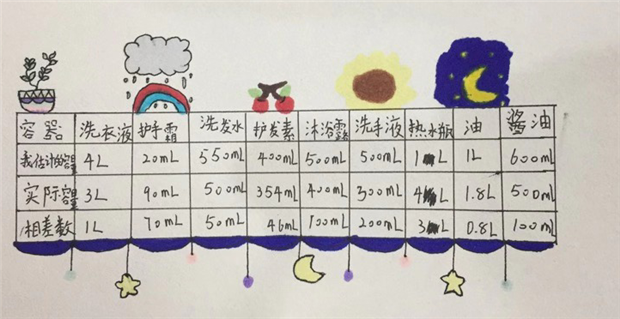 容器 洗衣液 护手霜 洗发水 护发素 沐浴露 洗手液 热水瓶 油 酱油
我估计的容量 4L 20mL 550mL 400mL 500mL 500mL 1L 1L 600mL
实际容量 3L 90mL 500mL 354mL 400mL 300mL 4L 1.8L 500mL
相差数 1L 70mL 50mL 46mL 100mL 200mL 3L 0.8L 100mL